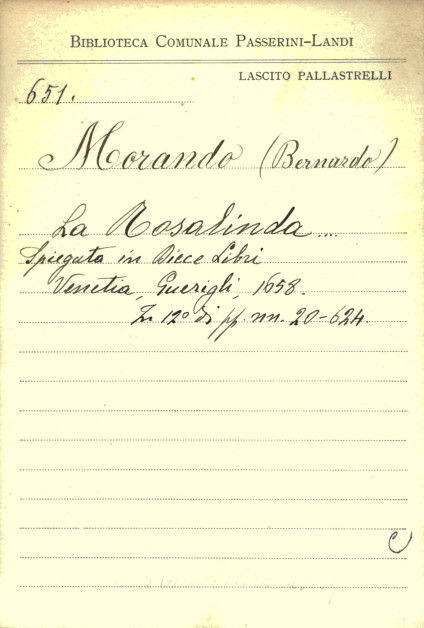 BIBLIOTECA COMUNALE PASSERINI-LANDI
LASCITO PALLASTRELLI
651.
Morando (Bernardo)
La Rosalinda ....
Spiegata in Diece Libri
Venetia, Guerigli, 1658.
In 12º di pp. nn. 20-624.